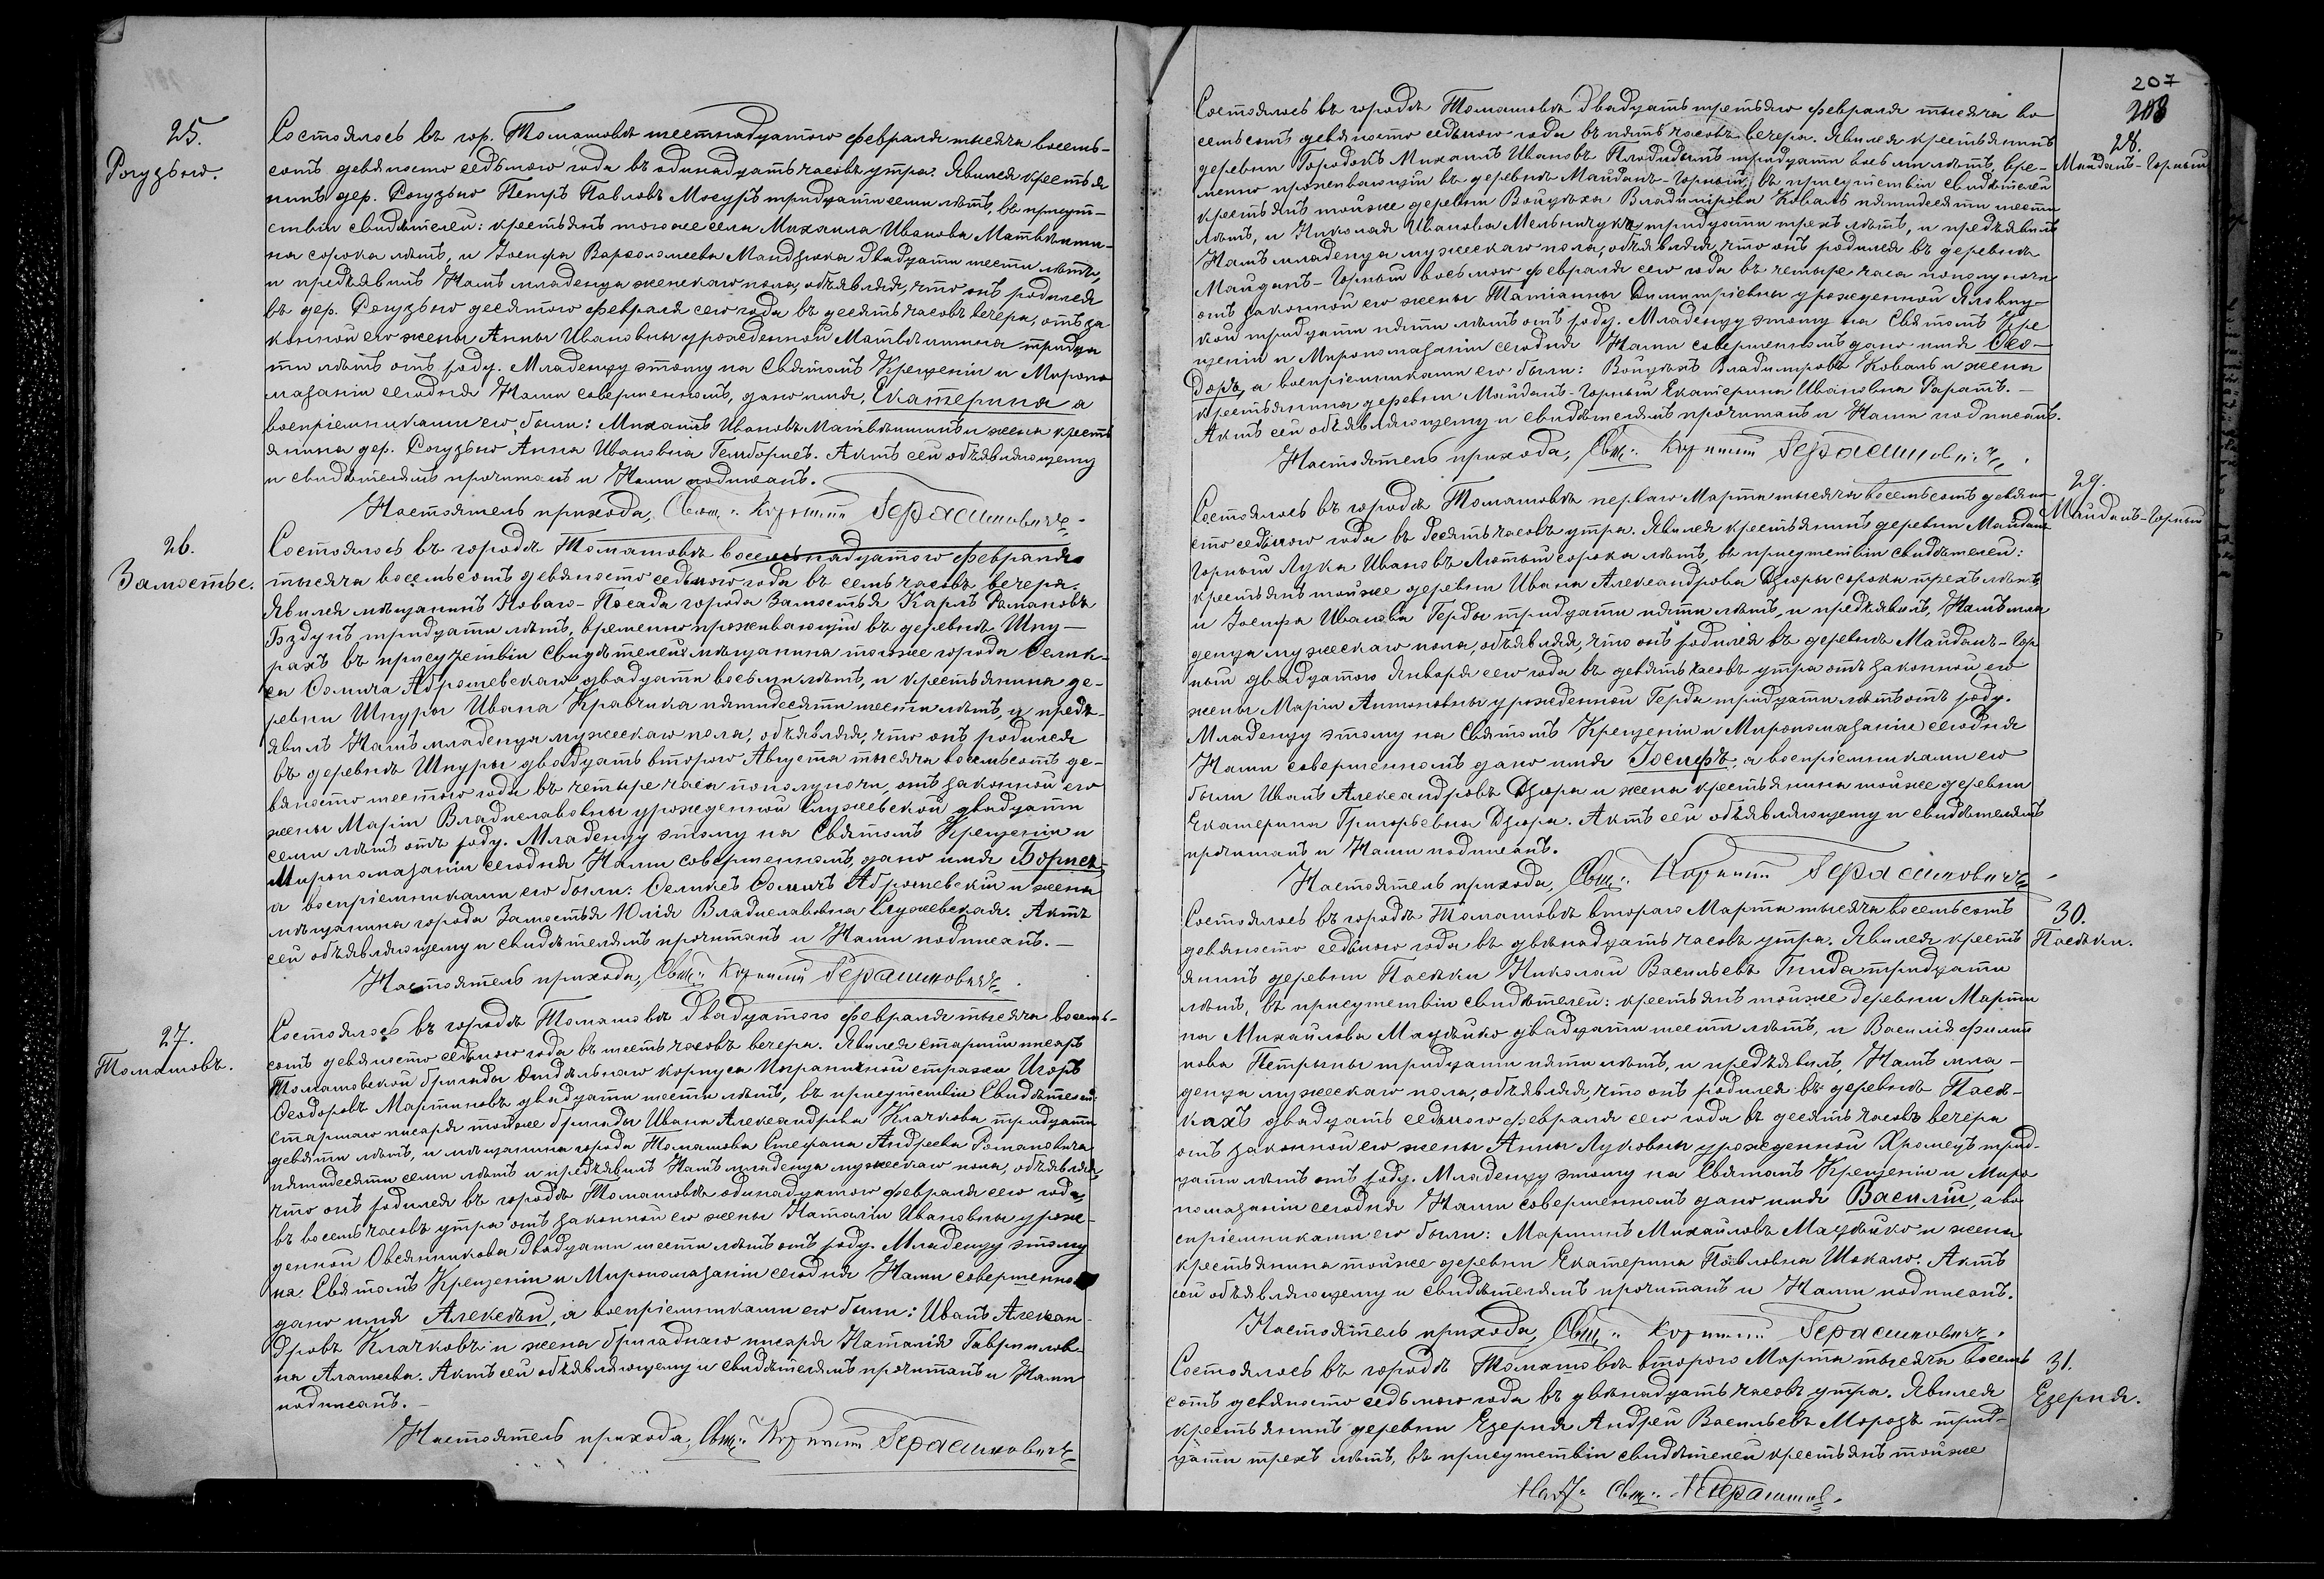 25.
Рогузьно.
Состоялось въ гор. Томашовѣ шестнадцатого Февраля тысяча восемь-
сотъ девяносто седьмого года въ одинадцать часовъ утра. Явился крестья
нинъ дер. Рогузьно Петръ Павловъ Мосуръ тридцати семи лѣтъ, въ присут-
ствіи свидѣтелей: крестьянъ тогоже села Михаила Иванова Матвѣиши-
на сорока лѣтъ, и Іосифа Варѳоломеева Мандзюка двадцати шести лѣтъ,
и предъявилъ Намъ младенца женскаго пола, объявляя, что онъ родился
въ дер. Рогузьно десятого Февраля сего года въ десять часовъ вечера, отъ за
конной его жены Анны Ивановны урожденной Матвѣишина тридца
ти лѣтъ отъ роду. Младенцу этому на Святомъ Крещеніи и Миропо
мазаніи сегодня Нами совершенномъ, дано имя, Екатерина а
воспріемниками его были: Михаилъ Ивановъ Матвѣишинъ и жена кресть
янина дер. Рогузьно Анна Ивановна Гемборисъ. Актъ сей объявляющему
и свидѣтелямъ прочитанъ и Нами подписанъ.
Настоятель прихода, Свщ: Корнилій Герасимовичъ
26.
Замостье.
Состоялось въ городѣ Томашовѣ восемьнадцатого Февраля
тысяча восемьсотъ девяносто седьмого года въ семь часовъ вечера.
Явился мѣщанинъ Новаго-Посада города Замостья Карлъ Романовъ
Бздунъ тридцати лѣтъ, временно проживающій въ деревнѣ Шпу-
рахъ въ присутствіи свидѣтелей мѣщанина тогоже города Феликс-
са Фомича Аброшевскаго двадцати восьми лѣтъ, и крестьянина де-
ревни Шпуры Ивана Кравчика пятидесяти шести лѣтъ, и предъ-
явилъ Намъ младенца мужескаго пола, объявляя, что онъ родился
въ деревнѣ Шпуры двадцать второго Августа тысяча восемьсотъ де-
вяносто шестого года въ четыре часа пополуночи, отъ законной его
жены Маріи Владиславовны урожденной Служевской двадцати
семи лѣтъ отъ роду. Младенцу этому на Святомъ Крещеніи и
Миропомазаніи сегодня Нами совершенномъ, дано имя Борисъ,
а воспріемниками его были: Феликсъ Фомичъ Аброшевскій и жена
мѣщанина города Замостья Юлія Владиславовна Служевская. Актъ
сей объявляющему и свидѣтелямъ прочитанъ и Нами подписанъ.
Настоятель прихода, Свщ: Корнилій Герасимовичъ.
27.
Томашовъ.
Состоялось въ городѣ Томашовѣ двадцатого Февраля тысяча восемь-
сотъ девяносто седьмого года въ шесть часовъ вечера. Явился старшій писарь
Томашовской бригады Отдѣльнаго корпуса Пограничной стражи Игорь
Ѳеодоровъ Мартиновъ двадцати шести лѣтъ, въ присутствіи Свидѣтелей:
старшаго писаря тойже бригады Ивана Александрова Клачкова тридцати
девяти лѣтъ, и мѣщанина города Томашова Стефана Андреева Романовича
пятидесяти семи лѣтъ и предъявилъ Намъ младенца мужескаго пола, объявляя
что онъ родился въ городѣ Томашовѣ одинадцатого Февраля сего года
въ восемь часовъ утра отъ законной его жены Наталіи Ивановны урож-
денной Овсянникова двадцати шести лѣтъ отъ роду. Младенцу этому
на Святомъ Крещеніи и Миропомазаніи сегодня Нами совершенно
дано имя Алексѣй, а воспріемниками его были: Иванъ Алексан-
дровъ Клачковъ и жена бригаднаго писаря Наталія Гавриилов-
на Алашева. Актъ сей объявляющему и свидѣтелямъ прочитанъ и Нами
подписанъ.
Настоятель прихода, Свщ: Корнилій Герасимовичъ
207
208
28.
Майданъ-Горный
Состоялось въ городѣ Томашовѣ двадцать третьяго Февраля тысяча во
семьсотъ девяносто седьмого года въ пять часовъ вечера. Явился крестьянинъ
деревни Городокъ Михаилъ Ивановъ Плодидымъ тридцати восьми лѣтъ, вре-
менно проживающій въ деревнѣ Майданъ-Горный, въ присутствіи свидѣтелей
крестьянъ тойже деревни Войцѣха Владимірова Коваль пятидесяти шести
лѣтъ, и Николая Иванова Мельничука тридцати трехъ лѣтъ, и предъявилъ
Намъ младенца мужескаго пола, объявляя, что онъ родился въ деревнѣ
Майданъ-Горный восьмого Февраля сего года въ четыре часа пополуночи
отъ законной его жены Татіанны Димитріевны урожденной Яловиц-
кой тридцати пяти лѣтъ отъ роду. Младенцу этому на Святомъ Кре
щеніи и Миропомазаніи сегодня Нами совершенномъ дано имя Ѳео-
доръ, а воспріемниками его были: Войцѣхъ Владиміровъ Коваль и жена
крестьянина деревни Майданъ-Горный Екатерина Ивановна Паратъ.
Актъ сей объявляющему и свидѣтелямъ прочитанъ и Нами подписанъ.
Настоятель прихода, Свщ: Корнилій Герасимовичъ.
29.
Майданъ-Горный
Состоялось въ городѣ Томашовѣ перваго Марта тысяча восемьсотъ девяно-
сто седьмого года въ десять часовъ утра. Явился крестьянинъ деревни Майданъ
Горный Лука Ивановъ Лютый сорока лѣтъ, въ присутствіи свидѣтелей:
крестьянъ тойже деревни Ивана Александрова Дзюры сорока трехъ лѣтъ,
и Іосифа Иванова Герды тридцати пяти лѣтъ, и предъявилъ Намъ мла
денца мужескаго пола, объявляя, что онъ родился въ деревнѣ Майданъ-Гор
ный двадцатого Января сего года въ девять часовъ утра отъ законной его
жены Маріи Антоновны урожденной Герда тридцати лѣтъ отъ роду.
Младенцу этому на Святомъ Крещеніи и Миропомазаніи сегодня
Нами совершенномъ дано имя Іосифъ, а воспріемниками его
были Иванъ Александровъ Дзюра и жена крестьянина тойже деревни
Екатерина Григорьевна Дзюра. Актъ сей объявляющему и свидѣтелямъ
прочитанъ и Нами подписанъ.
Настоятель прихода, Свщ: Корнилій Герасимовичъ
30.
Пасѣки.
Состоялось въ городѣ Томашовѣ второго Марта тысяча восемьсотъ
девяносто седьмого года въ двѣнадцать часовъ утра. Явился кресть
янинъ деревни Пасѣки Николай Васильевъ Гнида тридцати
лѣтъ, въ присутствіи свидѣтелей: крестьянъ тойже деревни Марти
на Михайлова Мацѣйко двадцати шести лѣтъ, и Василія Филип
пова Петрыны тридцати пяти лѣтъ, и предъявилъ Намъ мла-
денца мужескаго пола, объявляя, что онъ родился въ деревнѣ Пасѣ-
кахъ двадцать седьмого Февраля сего года въ десять часовъ вечера
отъ законной его жены Анны Луковны урожденной Хромецъ трид-
цати лѣтъ отъ роду. Младенцу этому на Святомъ Крещеніи и Миро
помазаніи сегодня Нами совершенномъ дано имя Василій, а во
спріемниками его были: Мартинъ Михайловъ Мацѣйко и жена
крестьянина тойже деревни Екатерина Павловна Шокало. Актъ
сей объявляющему и свидѣтелямъ прочитанъ и Нами подписанъ.
Настоятель прихода, Свщ: Корнилій Герасимовичъ.
31.
Езерня.
Состоялось въ городѣ Томашовѣ второго Марта тысяча восемь
сотъ девяносто седьмого года въ двѣнадцать часовъ утра. Явился
крестьянинъ деревни Езерня Андрей Васильевъ Морозъ трид-
цати трехъ лѣтъ, въ присутствіи свидѣтелей крестьянъ тойже
Наст: Свщ: